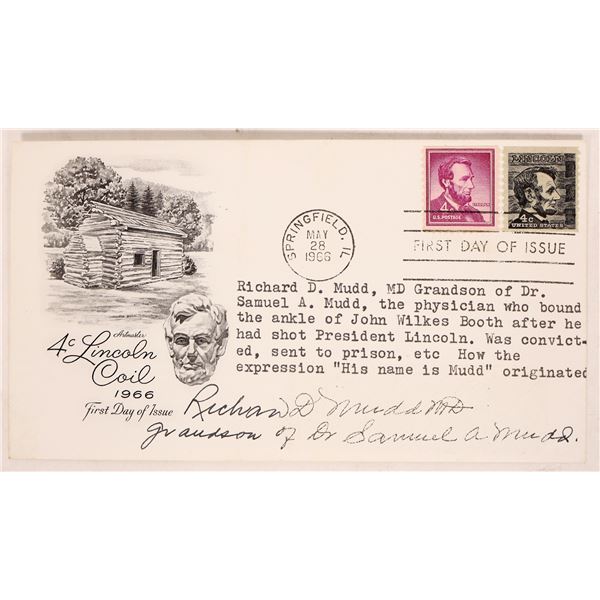 4¢
U.S. POSTAGE
4¢
UNITED STATES
SPRINGFIELD, IL
MAY
28
1966
FIRST DAY OF ISSUE
Richard D. Mudd, MD Grandson of Dr.
Samuel A. Mudd, the physician who bound
the ankle of John Wilkes Booth after he
had shot President Lincoln. Was convict-
ed, sent to prison, etc How the
expression "His name is Mudd" originated
Artmaster
4¢ Lincoln
Coil
1966
First Day of Issue
Richard D Mudd MD
grandson of Dr Samuel A Mudd.